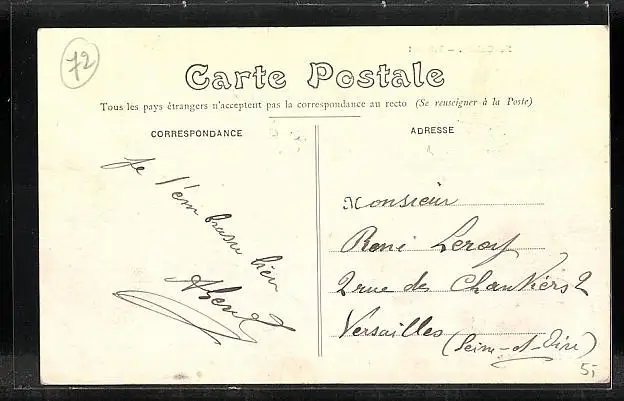 72
Carte Postale
Tous les pays étrangers n'acceptent pas la correspondance au recto (Se renseigner à la Poste)
CORRESPONDANCE
Je t'embrasse bien
ADRESSE
Monsieur
René Leroy
2 rue des Chantiers 2
Versailles
(Seine-et-Oise)
5